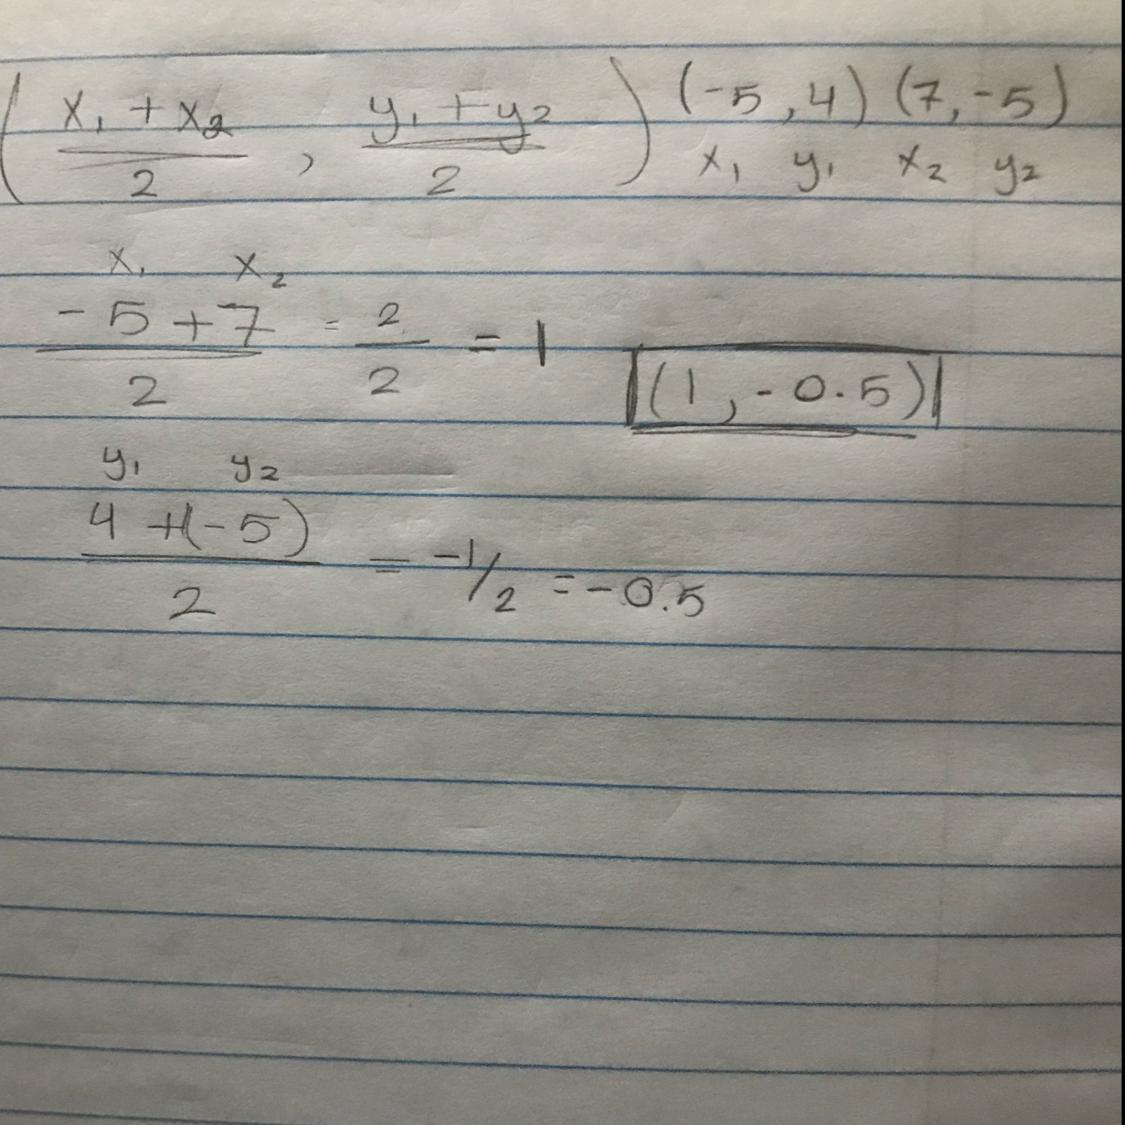 ( x₁ + x₂ / 2 , y₁ + y₂ / 2 ) (-5 , 4) (7, -5)
x₁ y₁ x₂ y₂
x₁ x₂
-5 + 7 / 2 = 2 / 2 = 1
(1, -0.5)
y₁ y₂
4 + (-5) / 2 = -1/2 = -0.5